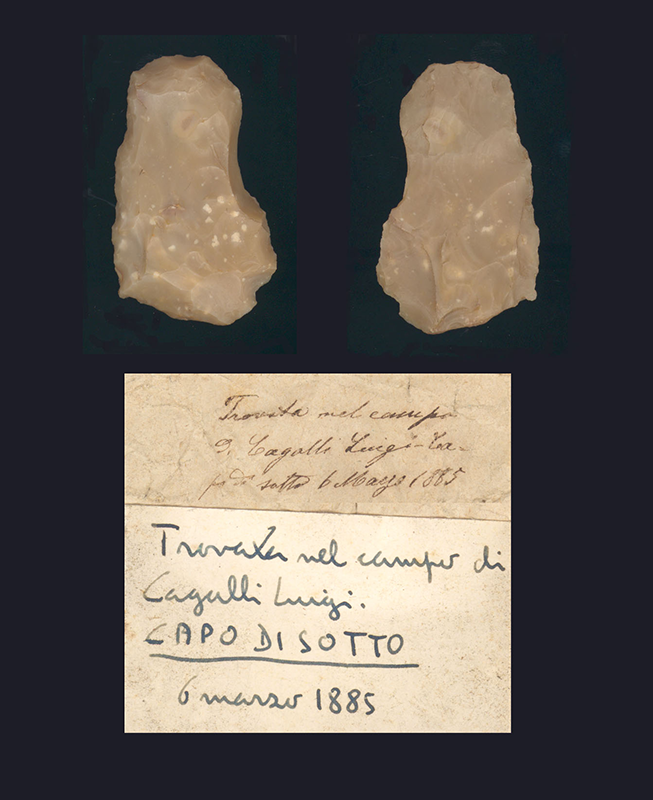 Trovata nel campo
di Cagalli Luigi-Ca-
po di sotto 6 Marzo 1885
Trovata nel campo di
Cagalli Luigi.
CAPO DI SOTTO
6 marzo 1885